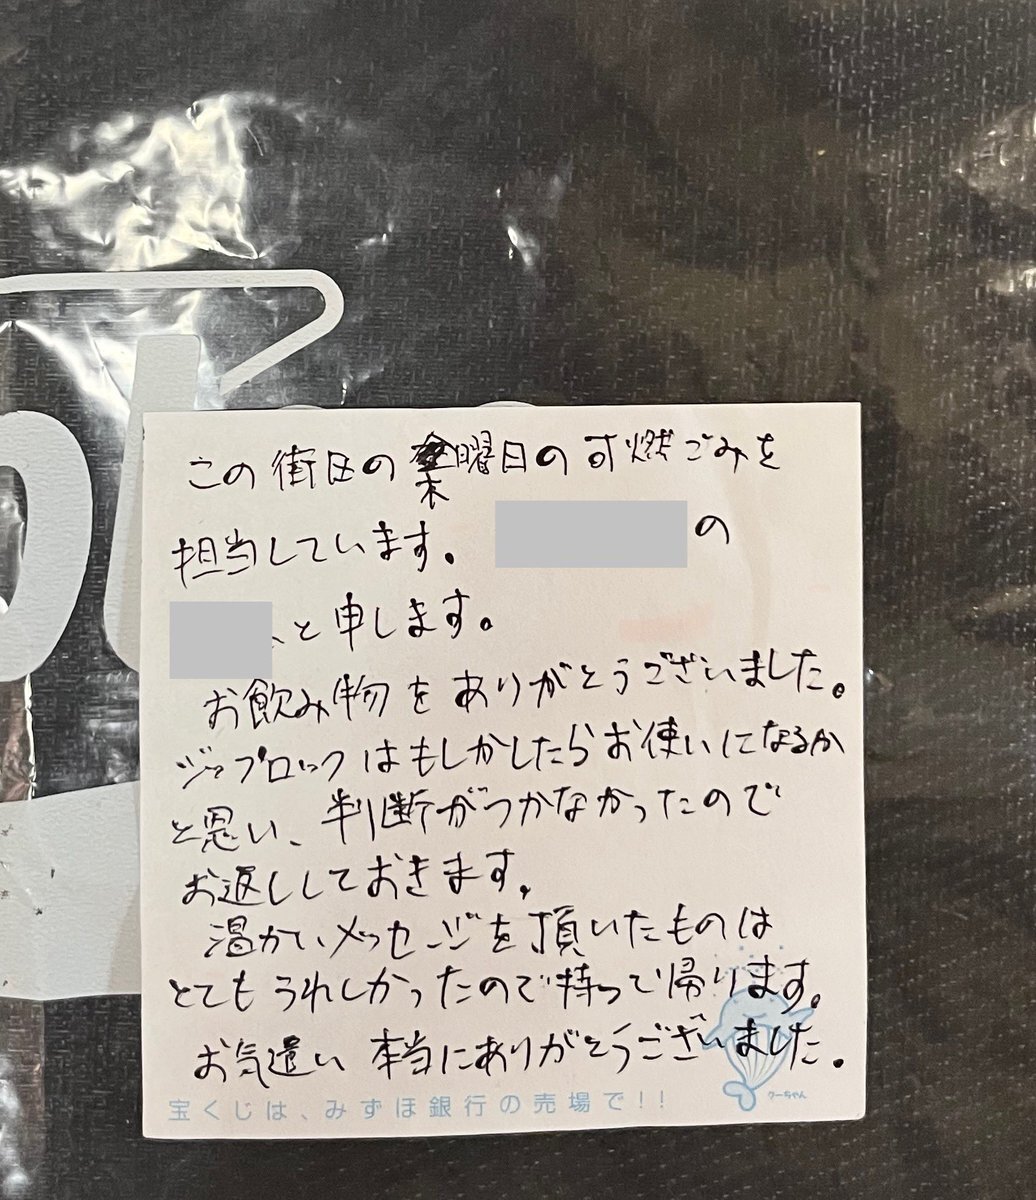 この街区の木曜日の可燃ごみを
担当しています。 の
、と申します。
お飲み物をありがとうございました。
ジップロックはもしかしたらお使いになるか
と思い、判断がつかなかったので
お返ししておきます。
温かいメッセージを頂いたものは
とてもうれしかったので持って帰ります。
お気遣い本当にありがとうございました。
クーちゃん
宝くじは、みずほ銀行の売場で!!